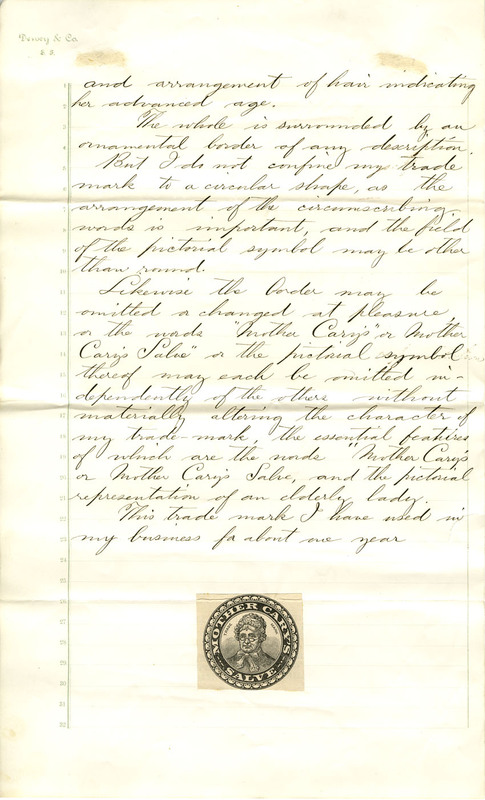 Dewey & Co.
S. F.
and arrangement of hair indicating
her advanced age.
The whole is surrounded by an
ornamental border of any description.
But I do not confine my trade
mark to a circular shape, as the
arrangement of the circumscribing
words is important, and the field
of the pictorial symbol may be other
than round.
Likewise the border may be
omitted or changed at pleasure,
or the words "Mother Cary's" or Mother
Cary's Salve" or the pictorial symbol
thereof may each be omitted in-
dependently of the others without
materially altering the character of
my trade-mark, the essential features
of which are the words "Mother Cary's
or Mother Cary's Salve, and the pictorial
representation of an elderly lady.
This trade mark I have used in
my business for about one year
MOTHER CARY'S
TRADE MARK
SALVE
1
2
3
4
5
6
7
8
9
10
11
12
13
14
15
16
17
18
19
20
21
22
23
24
25
26
27
28
29
30
31
32